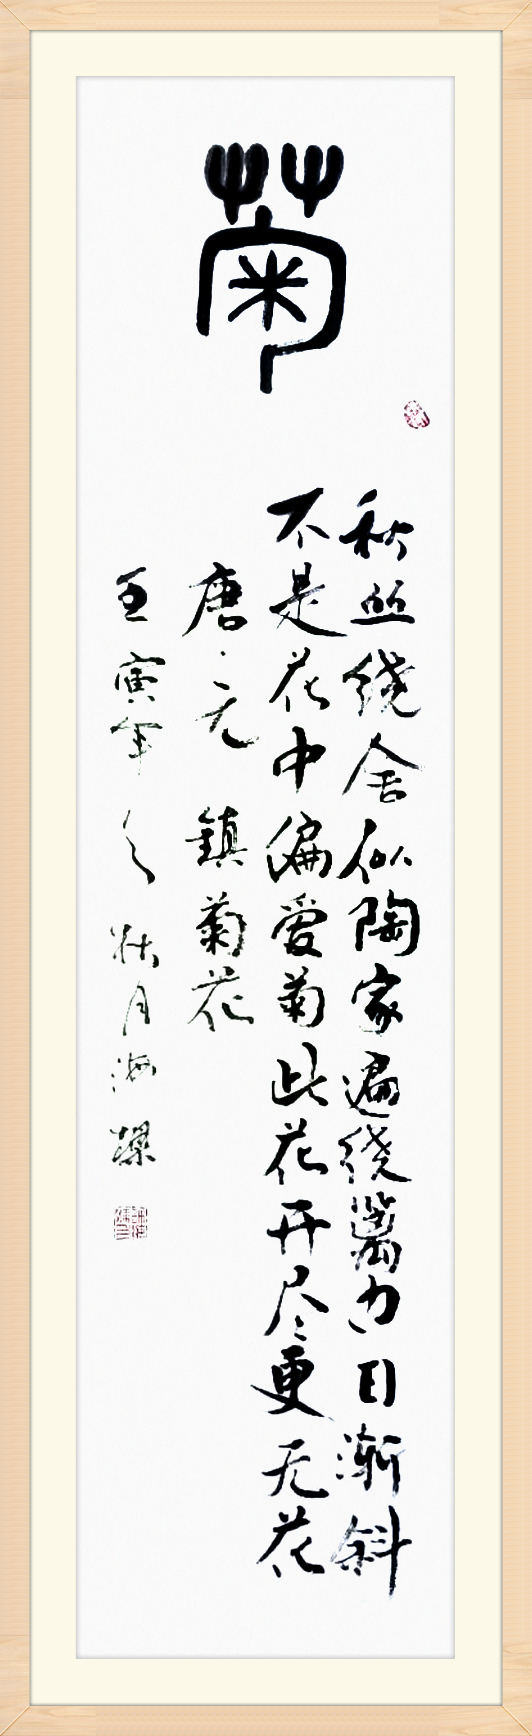 菊
秋丝绕舍似陶家遍绕篱边日渐斜
不是花中偏爱菊此花开尽更无花
唐元镇菊花
壬寅年之秋月海